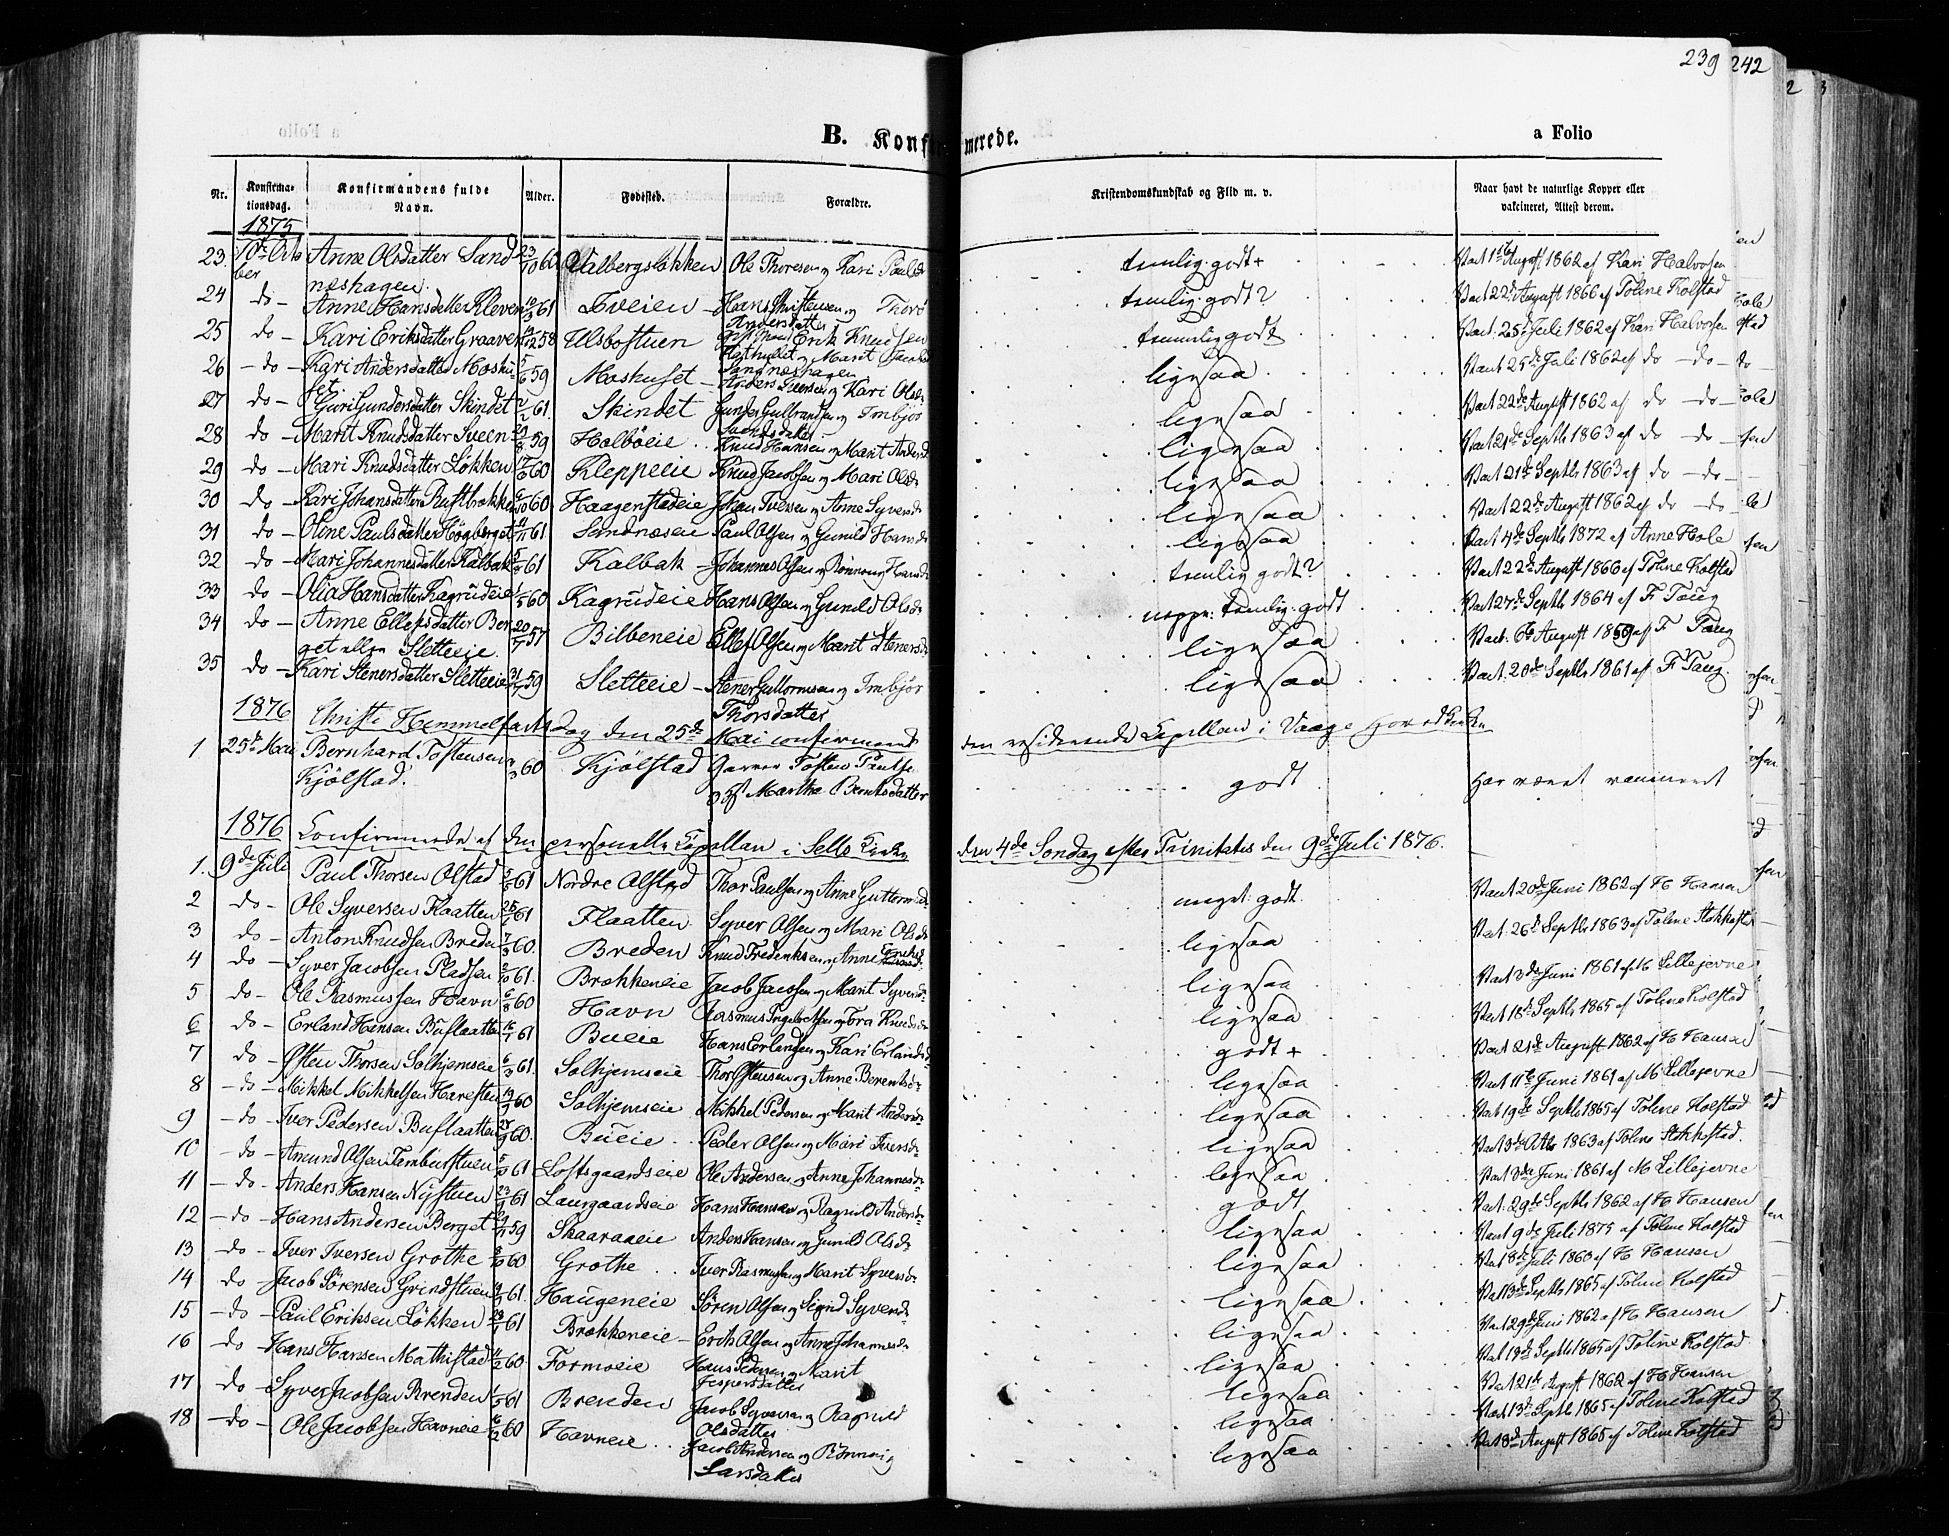 239
242
B. Konfirmerede.
a Folio
Nr.
Konfirmationsdag.
Konfirmandens fulde Navn.
Alder.
Fødested.
Forældre.
Kristendomskundskab og Flid m. v.
Naar havt de naturlige Kopper eller vakcineret, Attest derom.
1875
23. 10de October Anne Olsdatter Sandneshagen 23/10 60 Valbergsløkken Ole Thoresen og Kari Paulsd. temlig godt + Vact 1ste August 1862 af Kari Halvorsen
24 do Anne Hansdatter Kleven 61 Sveien Hans Christensen og Thorø Andersdatter temlig godt? Vact 22de August 1866 af Toline Kolstad
25 do Kari Eriksdatter Graaven 58 Ulsbostuen Erik Knudsen og Marit Jacobsd. temmelig godt Vact. 25de Juli 1862 af Kari Halvorsen
26 do Kari Andersdatter Moshuset 5/6 59 Moshuset Anders Iversen og Kari Olsd. ligesaa Vact 25de Juli 1862 af do do
27 do Guri Gundersdatter Skindet 2/2 61. Skindet Gunder Gulbrandsen og Imbjør Svendsdatter ligesaa Vact 22de August 1862 af do do
28 do Marit Knudsdatter Sveen 29/8 59 Holbøeie Knud Hansen og Marit Andersd ligesaa Vact 21de Septbr 1863 af do do
29 do Mari Knudsdatter Løkken 60 Kleppeeie Knud Jacobsen og Mari Olsd. ligesaa Vact 21de Septbr 1863 af do do
30 do Kari Johansdatter Rustbakken 60 Haagenstadeie Johan Iversen og Anne Syversd ligesaa Vact 22de August 1862 af do do
31 do Oline Paulsdatter Høgberget 61 Sandnæseie Paul Olsen og Gunild Hansd ligesaa Vact 4de Septbr 1872 af Anne Hole
32 do Mari Johannesdatter Kalbak 61 Kalbak Johannes Olsen og Rønnoug Hansd temlig godt? Vact 22de August 1866 af Toline Kolstad
33 do Olia Hansdatter Kagrudeie 1/5 60 Kagrudeie Hans Olsen og Gunild Olsd. neppe temlig godt Vact 27de Septbr 1864 af F Toug
34 do Anne Ellefsdatter Berget eller Sletteeie. 20/7 57 Bilbeneie Ellef Olsen og Marit Stenersd. ligesaa Vact. 6te August 1859 af F Toug
35 do Kari Stenersdatter Sletteeie 59 Sletteeie Stener Guttormsen og Imbjør Thorsdatter ligesaa Vact. 20de Septbr 1861 af F Toug.
1876 Christi Himmelfartsdag den 25de Mai confirmeret den residerende Capellan i Vaage Hovedkirke
1. 25de Mai Bernhard Tostensen Kjølstad. 60 Kjølstad Tosten Paulsen og Marthe Berntsdatter godt Har været vaccineret
1876 Confirmerede af den personelle Capellan i Sells Kirke den 4de Søndag efter Trinitatis den 9de Juli 1876.
1. 9de Juli Paul Thorsen Olstad 61 Nordre Olstad Thor Paulsen og Anne Guttormsd. meget godt Vact 20de Juni 1862 af H Hansen
2 do Ole Syversen Flaatten 61 Flaatten Syver Olsen og Mari Olsd ligesaa Vact. 26de Septbr 1863 af Toline Stokkestad
3 do Anton Knudsen Breden 60. Breden Knud Fredriksen og Anne ligesaa Vact 3de Juni 1861 af M Lillejevne
4 do Syver Jacobsen Pladsen 61. Brekkeneie Jacob Jacobsen og Marit Syversd. ligesaa Vact 18de Septbr 1865 af Toline Kolstad
5 do Ole Rasmussen Havn 60 Havn Rasmus Ingebretsen og Tora Knudsd. godt + Vact 21de August 1862 af H Hansen
6 do Erland Hansen Buflaatten 61 Bueie Hans Erlandsen og Kari Erlandsd. ligesaa Vact 11te Juni 1861 af M Lillejevne
7 do Østen Thorsen Solhjemseie 6/3 61. Solhjemseie Thor Østensen og Anne Berentsd. ligesaa Vact 19de Septbr 1865 af Toline Kolstad
8 do Mikkel Mikkelsen Haresten 60 Solhjemseie Mikkel Pedersen og Marit Andersd. ligesaa Vact 3de Octb 1863 af Toline Stokkestad.
9 do Iver Pedersen Buflaatten 60. Bueie Peder Olsen og Mari Iversd. ligesaa Vact 3de Juni 1861 af M Lillejevne
10 do Amund Olsen Tamburstuen 61 Loftsgaardseie Ole Andersen og Anne Johannesd. godt Vact. 29de Septbr 1862 af H Hansen
11 do Anders Hansen Nystuen 61 Laurgaardseie Hans Hansen og Ragnild Andersd. ligesaa Vact 9de Juli 1875 af Toline Kolstad
12 do Hans Andersen Berget 59 Skaaraaeie Anders Hansen og Gunild Olsd. ligesaa Vact 8de Juli 1860 af H Hansen
13 do Iver Iversen Grothe 60 Grothe Iver Rasmusen og Marit Syversd. ligesaa Vact 13de Septbr 1865 af Toline Kolstad
14 do Jacob Sørensen Grindstuen 61 Haugeneie Søren Olsen og Sigrid Syversd. ligesaa Vact 29de Juni 1862 af H Hansen
15 do Paul Eriksen Løkken 61 Brekkeneie Erik Olsen og Anne Johannesd. ligesaa Vact 19de Septbr 1865 af Toline Kolstad
16 do Hans Hansen Mathistad 11/2 60 Formoeie Hans Pedersen og Marit Jespersdatter ligesaa Vact 21de August 1862 af H Hansen
17 do Syver Jacobsen Brenden 1/5 61 Brenden Jacob Syversen og Ragnild Olsdatter ligesaa Vact 13de Septbr 1865 af Toline Kolstad
18 do Ole Jacobsen Havneie 16/2 60 Havneie Jacob Andersen og Rønnoug Larsdatter ligesaa Vact 8de August 1865 af Toline Kolstad